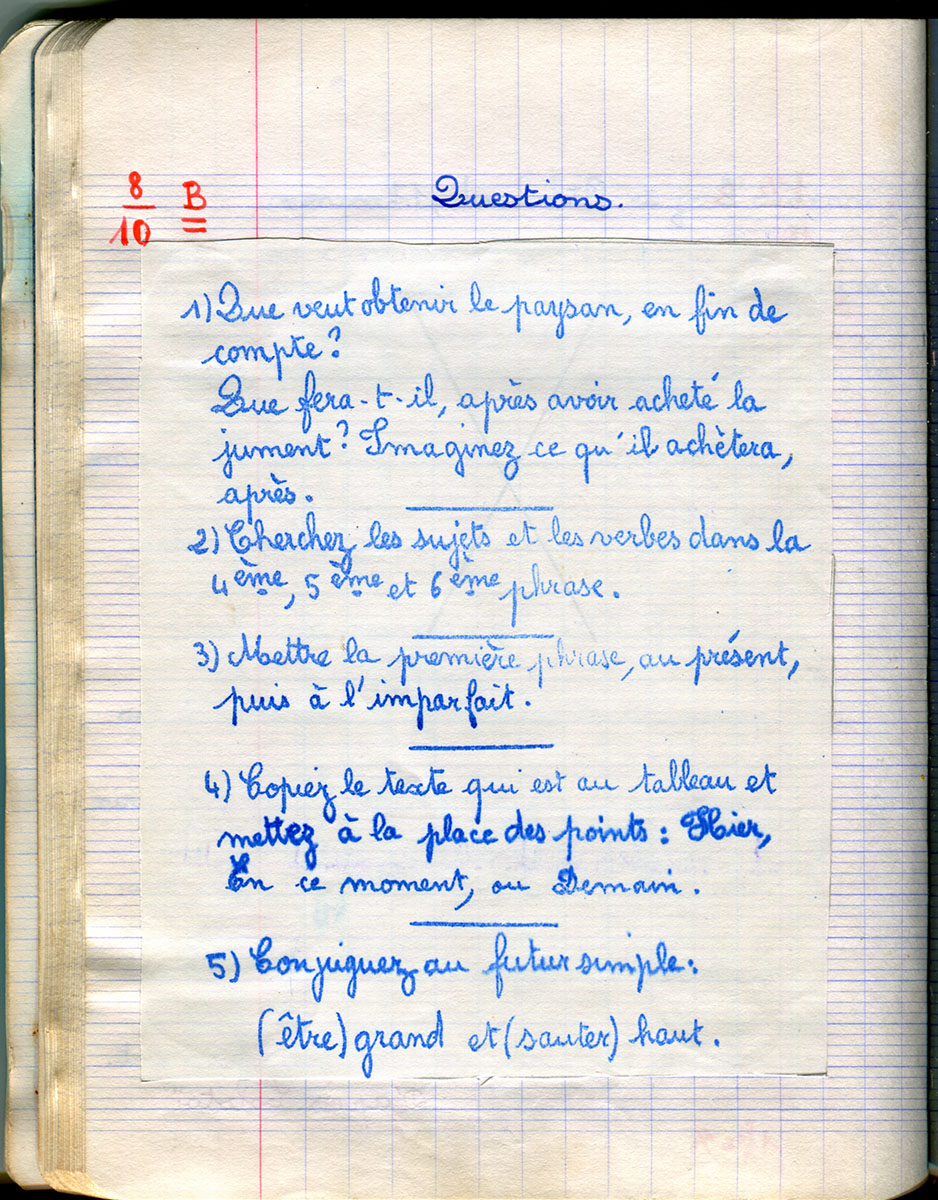 8
10
B
Questions.
1) Que veut obtenir le paysan, en fin de
compte?
Que fera-t-il, après avoir acheté la
jument? Imaginez ce qu'il achètera,
après.
2) Cherchez les sujets et les verbes dans la
4ème, 5ème et 6ème phrase.
3) Mettre la première phrase, au présent,
puis à l'imparfait.
4) Copiez le texte qui est au tableau et
mettez à la place des points : Hier,
En ce moment, ou Demain.
5) Conjuguez au futur simple:
(être) grand et (sauter) haut.